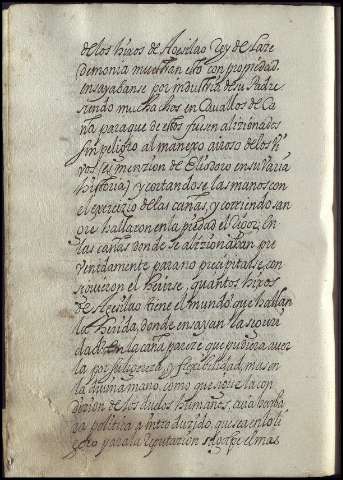 de los hixos de Agesilao Rey de Laze
demonia muestran esto con propiedad,
ensayabanse por industria de su Padre
siendo muchachos en Cavallos de Ca
ña para que de estos fuesen alizionados
sin peligro al manexo airoso de los vi
vos, es menzion de Eliodoro en su varia
historia, y cortandose las manos con
el exercizio de las cañas, y corriendo san
gre hallaron en la piedad el rigor; En
las cañas donde se alizionaban pre
venidamente para no precipitarse, con
siguieron el herirse, quantos hixos
de Agesilao tiene el mundo que hallan
la herida, donde ensayan la seguri
dad? En la caña pareze que pudiera aver
la por su ligereza, y flexibilidad, mas en
la divina mano, como que sigue la con
dizion de los duelos humanos, cuia barba
ra politica a introduzido, que sea en lo li
gero para la reputazion el golpe el mas